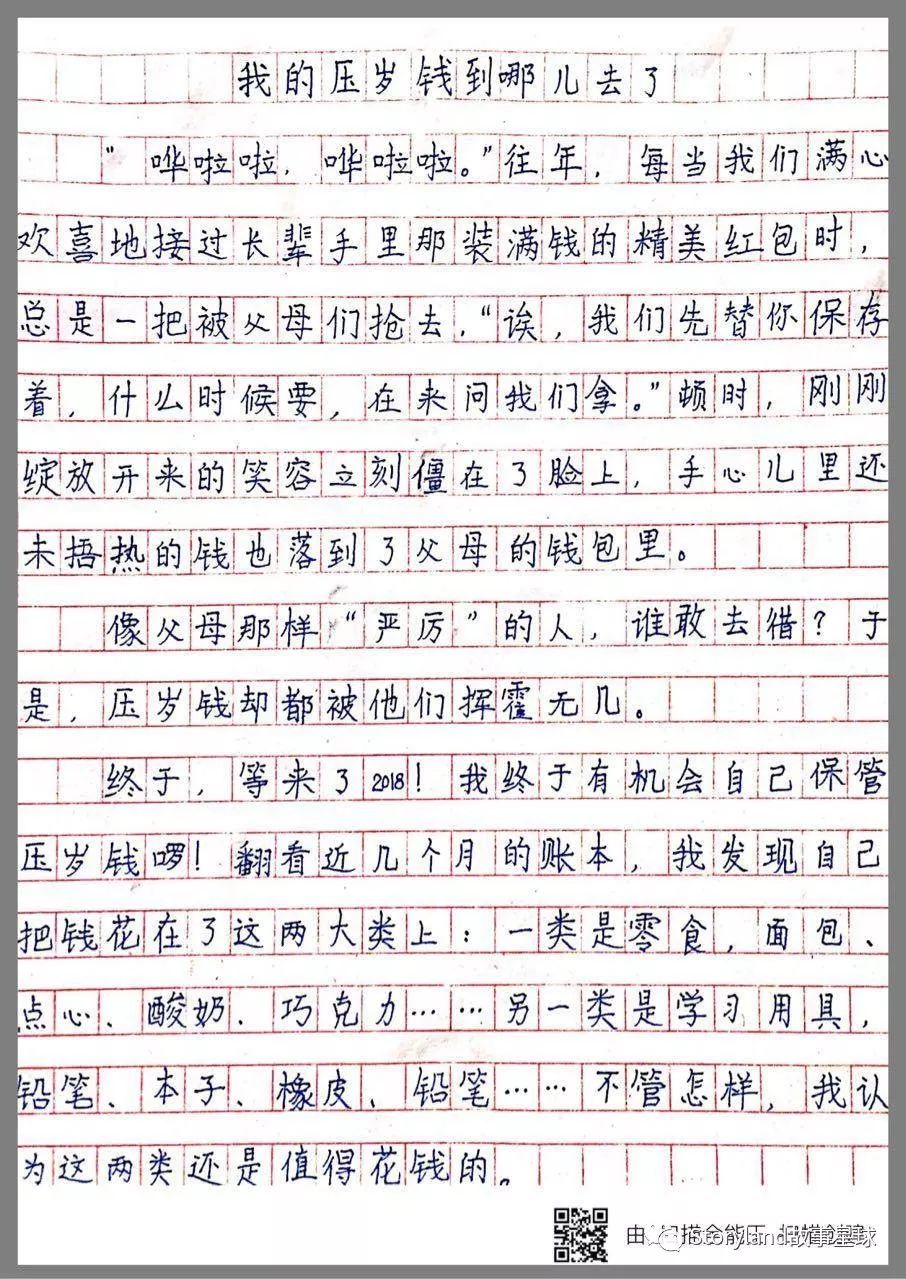 我的压岁钱到哪儿去了
“哗啦啦，哗啦啦。”往年，每当我们满心
欢喜地接过长辈手里那装满钱的精美红包时，
总是一把被父母们抢去，“诶，我们先替你保存
着，什么时候要，在来问我们拿。”顿时，刚刚
绽放开来的笑容立刻僵在了脸上，手心儿里还
未捂热的钱也落到了父母的钱包里。
像父母那样“严厉”的人，谁敢去借？于
是，压岁钱却都被他们挥霍无几。
终于，等来了2018！我终于有机会自己保管
压岁钱啰！翻看近几个月的账本，我发现自己
把钱花在了这两大类上：一类是零食，面包、
点心、酸奶、巧克力……另一类是学习用具，
铅笔、本子、橡皮、铅笔……不管怎样，我认
为这两类还是值得花钱的。
Storyland故事星球